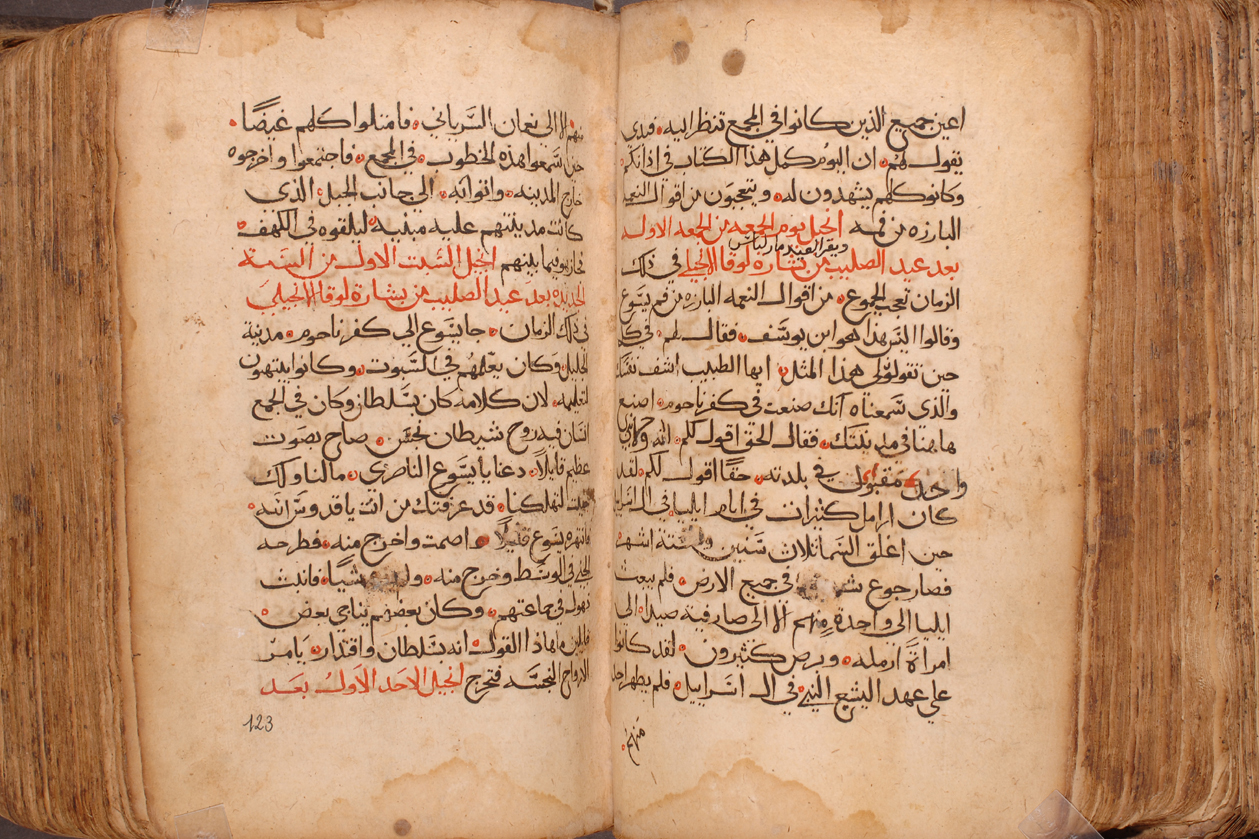 اعين جميع الذين كانوا في المجمع تنظر اليه فبدى
يقول لهم ان اليوم كمل هذا الكتاب في اذانكم
وكانو كلهم يشهدون له ويتعجبون من اقوال النعمه
البارزه من فمه انجيل يوم الجمعه من الجمعه الاوله
ويقرا لعيد مار لباس
بعد عيد الصليب من بشارة لوقا الانجيلي في ذلك
الزمان تعجب الجموع من اقوال النعمه البارزه من فم يسوع
وقالوا اليس هذا هو ابن يوسف فقال لهم
حين تقولو لي هذا المثل ايها الطبيب اشف نفسك
والذي سمعناه انك صنعت في كفرناحوم اصنع
هاهنا في مدينتك فقال الحق اقول لكم انه
واحد مقبول في بلدته حقا اقول لكم لقد
كان ارامل كثيرات في ايام ايليا في ال اسراييل
حين اغلق السما ثلاث سنين وستة اشهر
فصار جوع في جميع الارض فلم يبعث
ايليا الي واحدة منهم الا الى صارفية صيدا الى
امراة ارمله وبرص كثيرون لقد كانوا
علي عهد اليشع النبي في ال اسراييل فلم يطهر احد
منهم
منهم الا الى نعمان السرياني فامتلوا كلهم غيضا
حين سمعوا هذه الخطوب في المجمع فاجتمعوا واخرجوه
خارج المدينه واتوا به الي جانب الجبل الذي
كانت مدينتهم عليه مبنيه ليلقوه في الكهف
فجاز هو فيما بينهم انجيل السبت الاول من السنة
الجديده بعد عيد الصليب من بشارة لوقا الانجيلي
في ذلك الزمان جا يسوع الي كفرناحوم مدينة
الجليل وكان يعلمهم في السبوت وكانوا يبتهتون
لتعليمه لان كلامه كان بسلطان وكان في الجمع
انسان فيه روح شيطان نجس صاح بصوت
عظيم قايلا دعنا يا يسوع الناصري مالنا ولك
جيت لتهلكنا قد عرفتك من انت يا قدوس الله
فانتهره يسوع قايلا اصمت واخرج منه فطرحه
الجني في الوسط وخرج منه شيا فانبث
بهول في جماعتهم وكان بعضهم يناجي بعض
قايلين ما هذا القول انه بسلطان واقتدار يامر
الارواح النجسه فتخرج انجيل الاحد الاول بعد
123